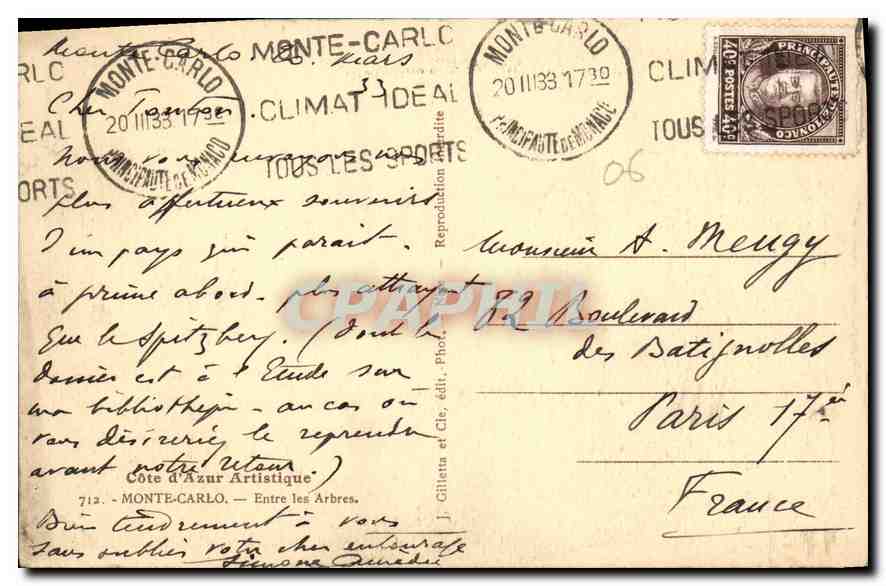 Monte Carlo 20 mars
33
MONTE-CARLO
CLIMAT IDEAL
TOUS LES SPORTS
RLO
EAL
ORTS
MONTE-CARLO
20 III 33. 17 30
PRINCIPAUTE DE MONACO
MONTE-CARLO
20 III 33. 17 30
PRINCIPAUTE DE MONACO
CLIM
TOUS
SPOR
PRINCIPAUTE DE MONACO
40c POSTES 40c
06
Cher
Nous vous envoyons nos
plus affectueux souvenirs
d'un pays qui parait.
à prime abord. plus attrayant
que le Spitzberg. (dont le
dossier est à l'Etude sur
ma bibliothèque - au cas où
vous désireriez le reprendre
avant notre retour.)
Côte d'Azur Artistique
712. - MONTE-CARLO. — Entre les Arbres.
Bien tendrement à vous
sans oublier votre cher entourage
Simone Amédée
J. Gilletta et Cie, édit.-Phot. Reproduction interdite
CPAPHIL
Monsieur A. Meugy
82 Boulevard
des Batignolles
Paris 17è
France